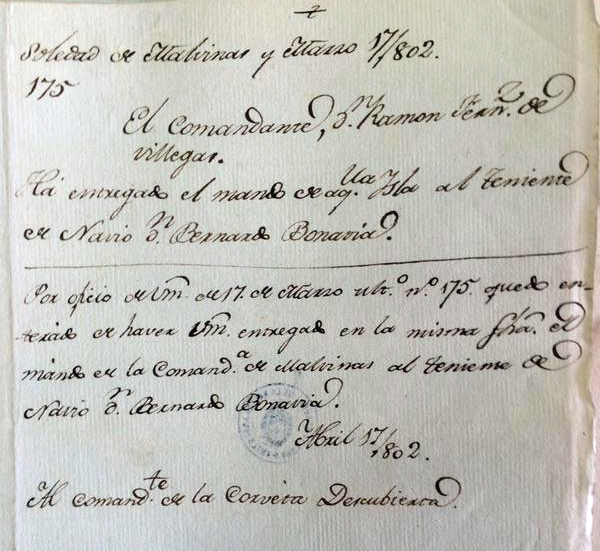 Soledad de Malvinas y Marzo 17/802.
175
El Comandante, Dn. Ramon Fernz. de
Villegas.
Há entregado el mando de aqUlla Isla al Teniente
de Navio Dn. Bernardo Bonavia.
Por oficio de Vm. de 17. de Marzo ult.o n.o 175. quedo en-
terado de haver Vm. entregado en la misma fha. el
mando de la Comand.a de Malvinas al teniente de
Navio Dn. Bernardo Bonavia.
Abril 17/802.
Al Comand.te de la Corveta Descubierta.